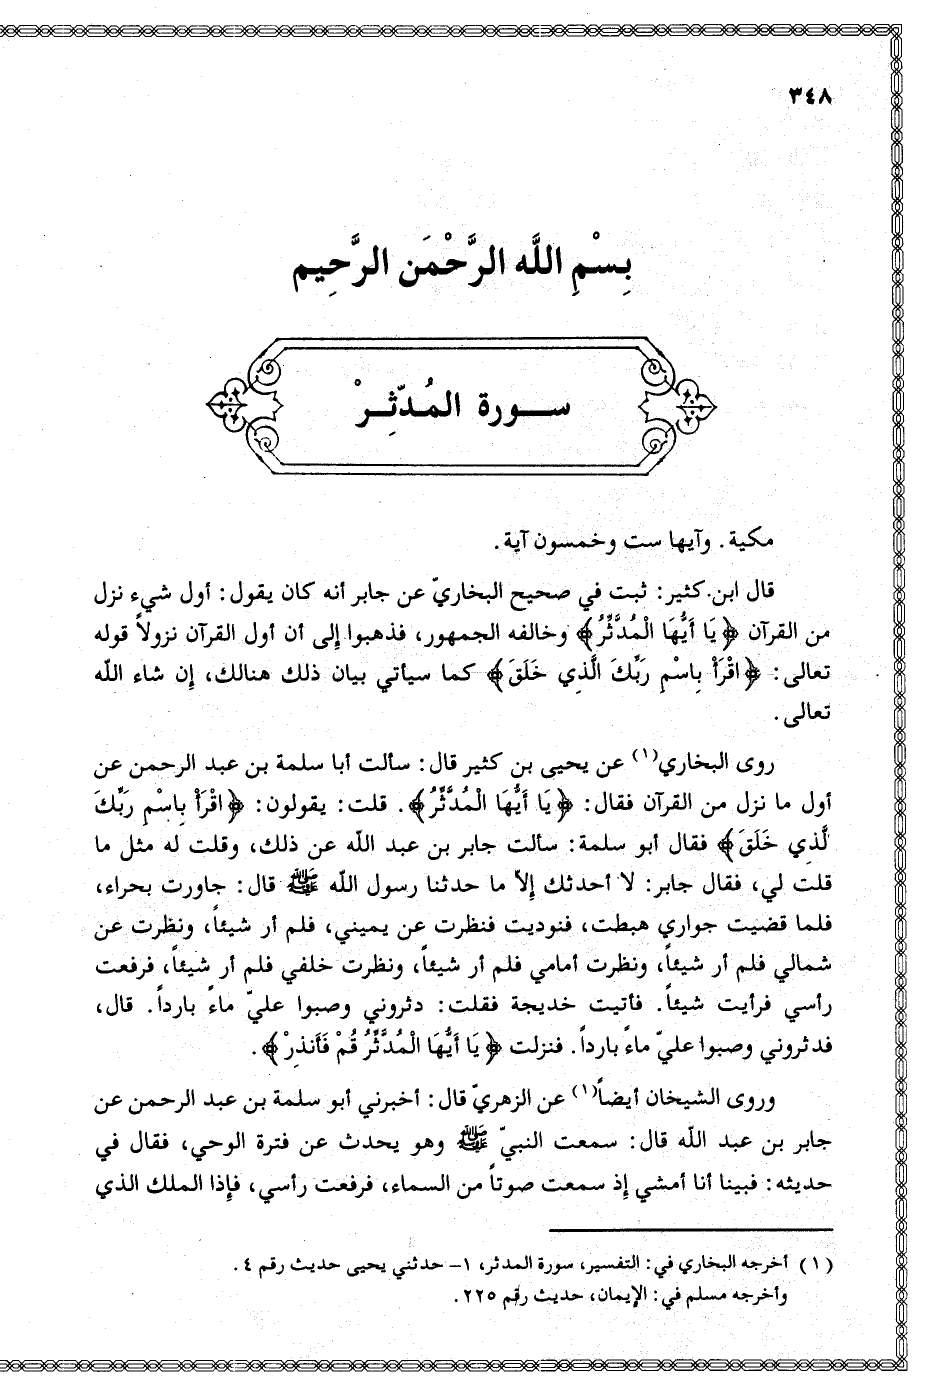 ٣٤٨
بِسْمِ اللَّه الرَّحْمَن الرَّحِيم
ســورة المُدّثِـرْ
مكية. وآيها ست وخمسون آية.
قال ابن كثير: ثبت في صحيح البخاريّ عن جابر أنه كان يقول: أول شيء نزل
من القرآن ﴿يَا أَيُّهَا الْمُدَّثِّرُ﴾ وخالفه الجمهور، فذهبوا إلى أن أول القرآن نزولاً قوله
تعالى: ﴿اقْرَأْ بِاسْمِ رَبِّكَ الَّذِي خَلَقَ﴾ كما سيأتي بيان ذلك هنالك، إن شاء اللّه
تعالى.
روى البخاري(١) عن يحيى بن كثير قال: سألت أبا سلمة بن عبد الرحمن عن
أول ما نزل من القرآن فقال: ﴿يَا أَيُّهَا الْمُدَّثِّرُ﴾. قلت: يقولون: ﴿اقْرَأْ بِاسْمِ رَبِّكَ
لَّذِي خَلَقَ﴾ فقال أبو سلمة: سألت جابر بن عبد اللّه عن ذلك، وقلت له مثل ما
قلت لي، فقال جابر: لا أحدثك إلاّ ما حدثنا رسول اللّه ﷺ قال: جاورت بحراء،
فلما قضيت جواري هبطت، فنوديت فنظرت عن يميني، فلم أر شيئاً، ونظرت عن
شمالي فلم أر شيئاً، ونظرت أمامي فلم أر شيئاً، ونظرت خلفي فلم أر شيئاً، فرفعت
رأسي فرأيت شيئاً. فأتيت خديجة فقلت: دثروني وصبوا عليّ ماءً بارداً. قال،
فدثروني وصبوا عليّ ماءً بارداً. فنزلت ﴿يَا أَيُّهَا الْمُدَّثِّرُ قُمْ فَأَنذِرْ﴾.
وروى الشيخان أيضاً(١) عن الزهريّ قال: أخبرني أبو سلمة بن عبد الرحمن عن
جابر بن عبد اللّه قال: سمعت النبيّ ﷺ وهو يحدث عن فترة الوحي، فقال في
حديثه: فبينا أنا أمشي إذ سمعت صوتاً من السماء، فرفعت رأسي، فإذا الملك الذي
(١) أخرجه البخاري في: التفسير، سورة المدثر، ١- حدثني يحيى حديث رقم ٤.
وأخرجه مسلم في: الإيمان، حديث رقم ٢٢٥.